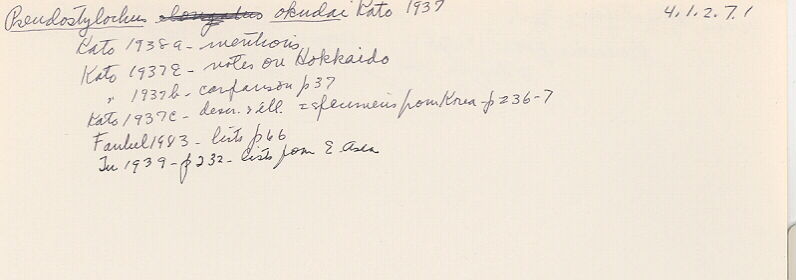 Pseudostylochus elongatus okudai Kato 1937 4.1.2.7.1
Kato 1938a - mentions
Kato 1937E - notes on Hokkaido
" 1937b - comparison p37
Kato 1937c - descr. & ill. = specimens from Korea - p236-7
Faubel 1983 - lists p66
Tu 1939 - p232 - lists from E Asia